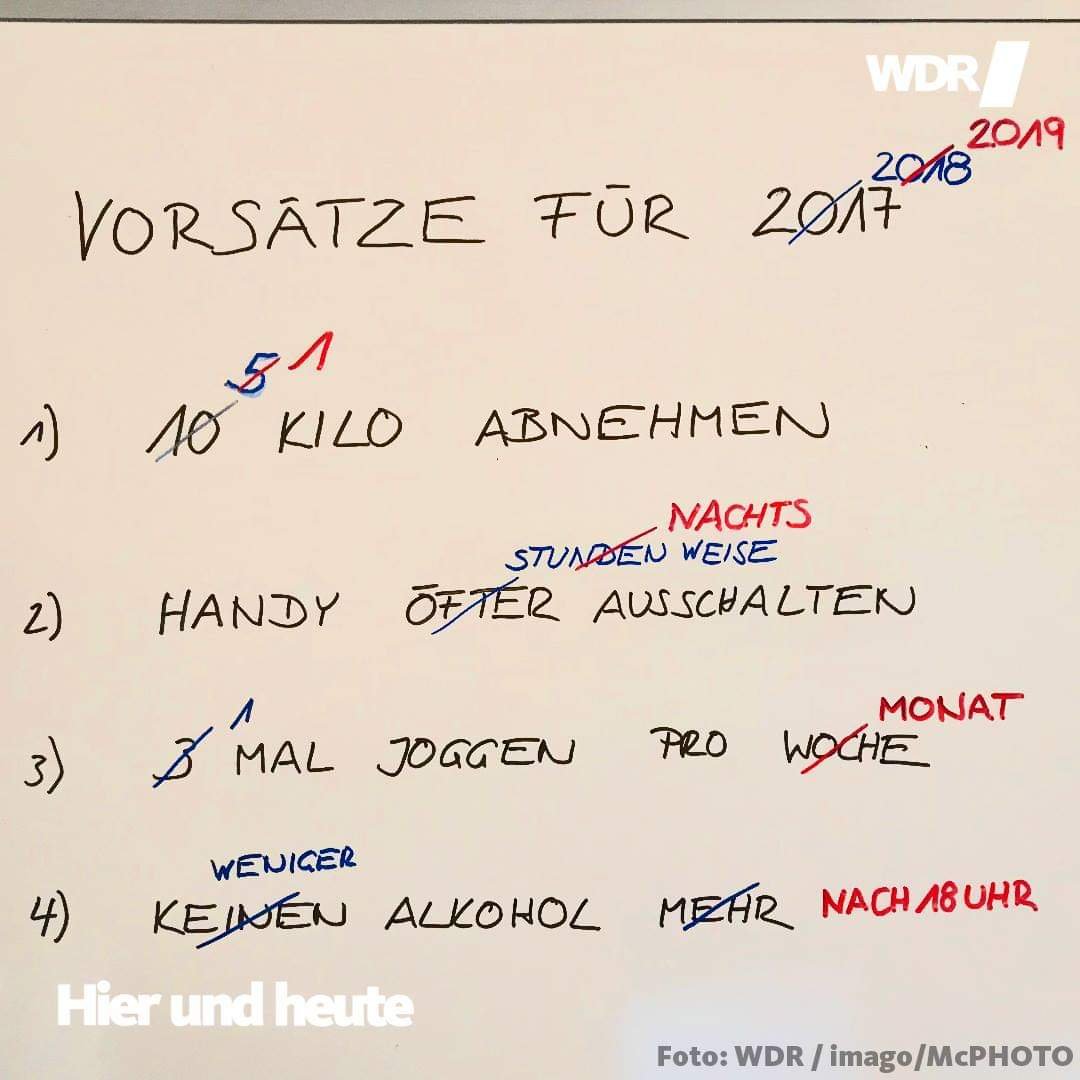 WDR
2019
2018
VORSÄTZE FÜR 2017
5 1
1) 10 KILO ABNEHMEN
NACHTS
STUNDEN WEISE
2) HANDY ÖFTER AUSSCHALTEN
1 MONAT
3) 3 MAL JOGGEN PRO WOCHE
WENIGER
4) KEINEN ALKOHOL MEHR NACH 18 UHR
Hier und heute
Foto: WDR / imago/McPHOTO